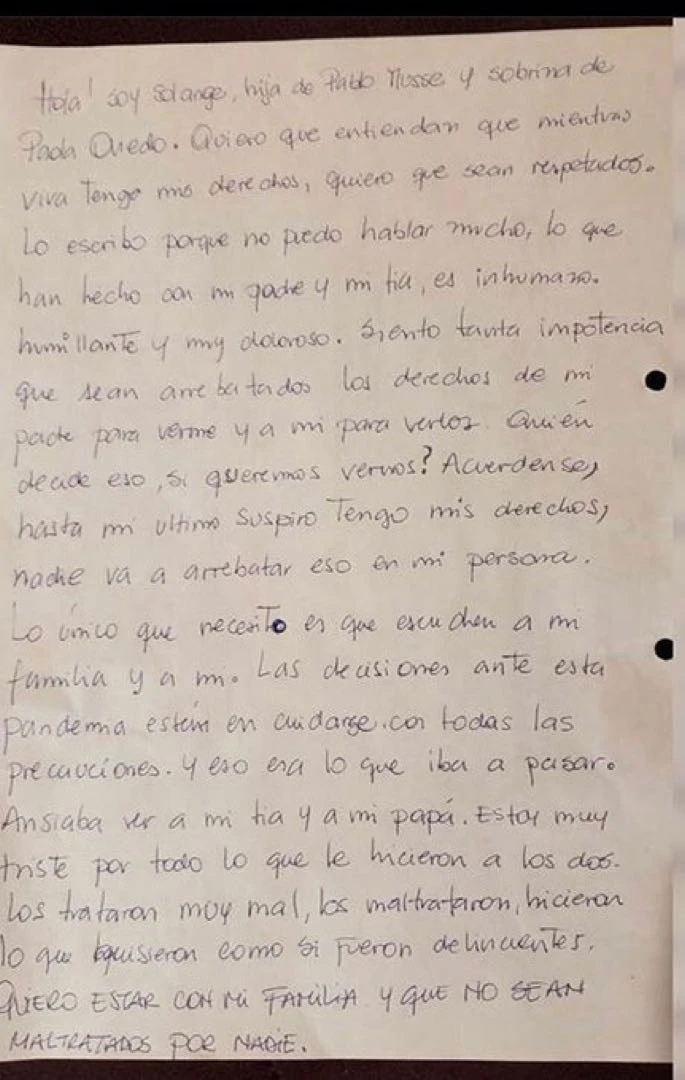 Hola! soy Solange, hija de Pablo Musse y sobrina de
Paola Oviedo. Quiero que entiendan que mientras
viva Tengo mis derechos, quiero que sean respetados.
Lo escribo porque no puedo hablar mucho, lo que
han hecho con mi padre y mi tia, es inhumano.
humillante y muy doloroso. Siento tanta impotencia
que sean arrebatados los derechos de mi
padre para verme y a mi para verlos. Quién
decide eso, si queremos vernos? Acuerdense,
hasta mi ultimo suspiro Tengo mis derechos,
nadie va a arrebatar eso en mi persona.
Lo único que necesito es que escuchen a mi
familia y a mi. Las decisiones ante esta
pandemia están en cuidarse con todas las
precauciones. y eso era lo que iba a pasar.
Ansiaba ver a mi tia y a mi papá. Estoy muy
triste por todo lo que le hicieron a los dos.
Los trataron muy mal, los maltrataron, hicieron
lo que quisieron como si fueron delincuentes.
QUIERO ESTAR CON MI FAMILIA Y QUE NO SEAN
MALTRATADOS POR NADIE.